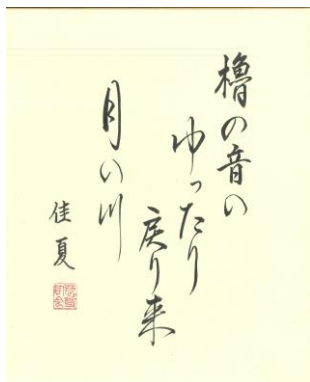 櫓の音の
ゆったり
戻り来
月の川
佳夏